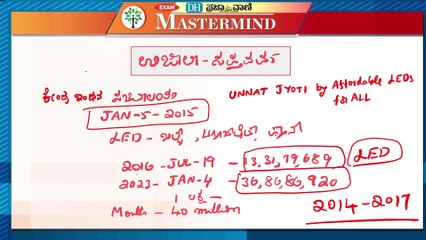 EXAM DH ಪ್ರಜಾವಾಣಿ
MASTERMIND
ಉಜಾಲಾ - ಸಪ್ತವರ್ಷ
ಕೇಂದ್ರ ಇಂಧನ ಸಚಿವಾಲಯ
UNNAT JYOTI by Affordable LEDs
for ALL
JAN-5-2015
LED - ಬಲ್ಬ್, ಟ್ಯೂಬ್‌ಲೈಟ್, ಫ್ಯಾನ್
2016 - JUL-19 - 13,31,79,689 LED
2023 - JAN-4 - 36,86,86,920
1 ಲಕ್ಷ
Month - 40 million
2014-2017